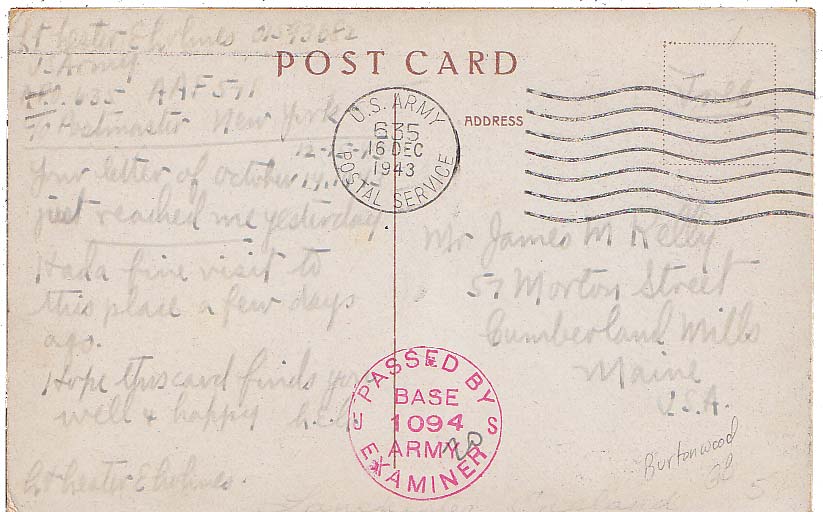 Lt Lester E Holmes
U.S. Army
APO 635 AAF 571
Postmaster New York
Your letter of October
just reached me yesterday.
Had a fine visit to
this place a few days
ago.
Hope this card finds you
well & happy
Lt Lester E Holmes.
POST CARD
ADDRESS
U.S. ARMY
635
16 DEC
1943
POSTAL SERVICE
Mr James M Kelly
57 Morton Street
Cumberland Mills
Maine
U.S.A.
PASSED BY
BASE
U 1094 S
ARMY
EXAMINER
20
Burtonwood
5